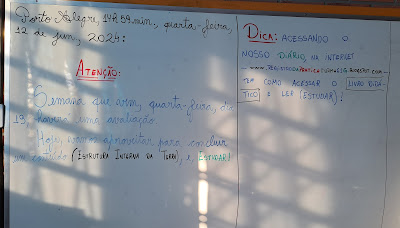 Porto Alegre, 14h 59min, quarta-feira,
12 de jun, 2024:
ATENÇÃO:
Semana que vem, quarta-feira, dia
19, haverá uma avaliação.
Hoje, vamos aproveitar para concluir
um conteúdo (ESTRUTURA INTERNA DA TERRA), e, ESTUDAR!
DICA: ACESSANDO O
NOSSO DIÁRIO, NA INTERNET
TEM COMO ACESSAR O LIVRO DIDÁ-
TICO E LER (ESTUDAR)!